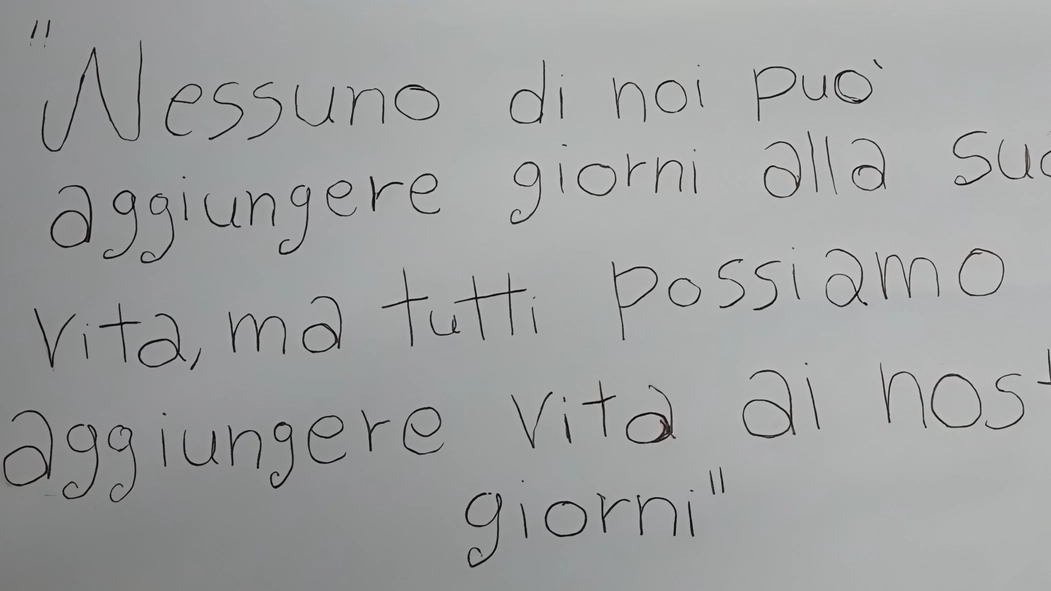 "Nessuno di noi può
aggiungere giorni alla
vita, ma tutti possiamo
aggiungere vita ai
giorni"